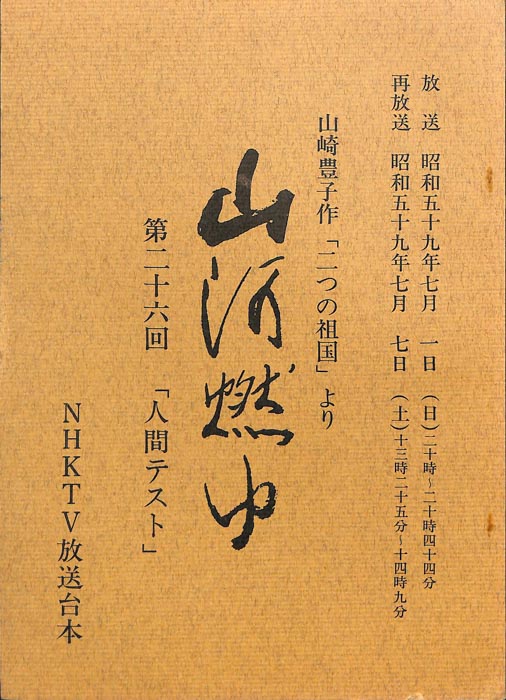 放送　昭和五十九年七月　一日　(日)二十時～二十時四十四分
再放送　昭和五十九年七月　七日　(土)十三時二十五分～十四時九分
山崎豊子作「二つの祖国」より
山河燃ゆ
第二十六回　「人間テスト」
NHKTV放送台本